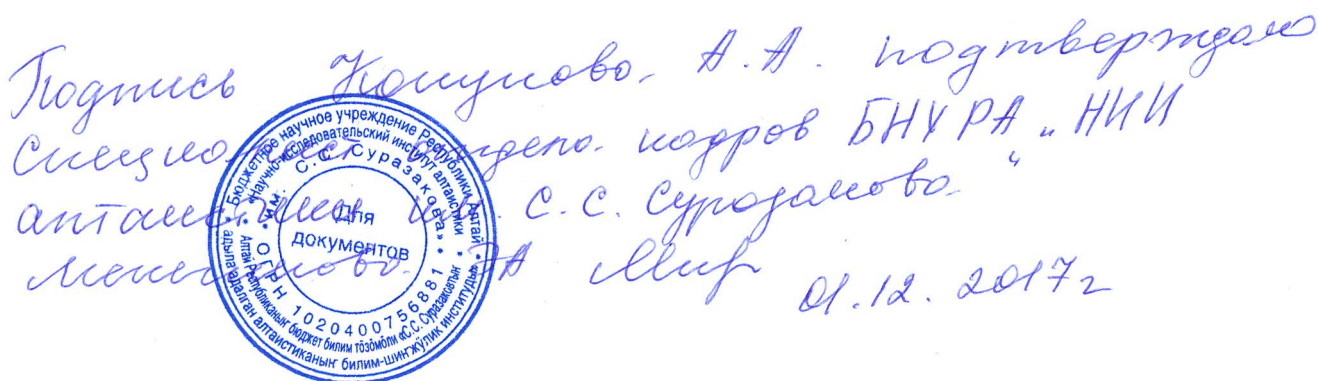 Подпись Конунова А.А. подтверждаю
Специалист отдела кадров БНУ РА „НИИ
алтаистики им. С.С. Суразакова“
01.12.2017г
• Бюджетное научное учреждение Республики Алтай •
«Научно-исследовательский институт алтаистики
им. С.С. Суразакова»
• ОГРН 1020400756881 •
Алтай Республиканыҥ бюджет билим тӧзӧмӧли «С.С. Суразаковтыҥ
адыла адалган алтаистиканыҥ билим-шиҥжӱлик институды»
Для
документов